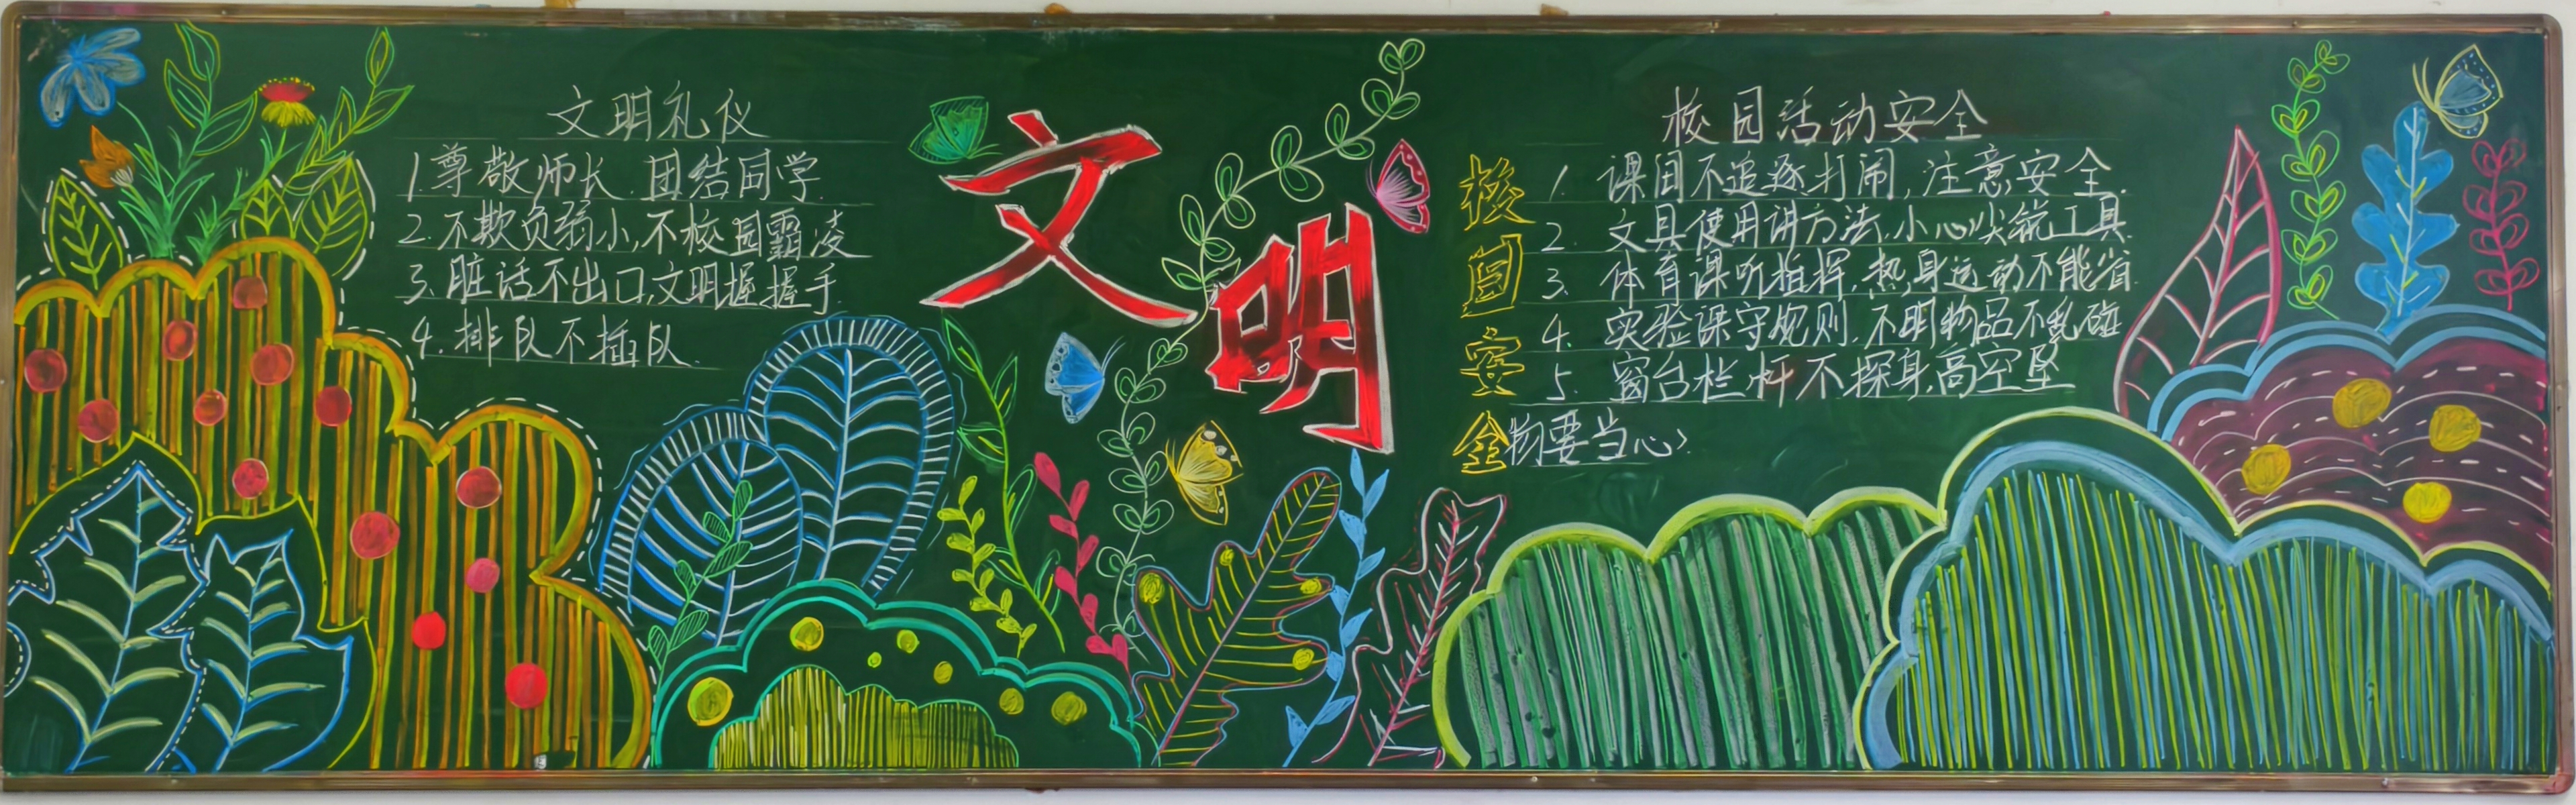 文明礼仪
1.尊敬师长.团结同学.
2.不欺负弱小,不校园霸凌
3.脏话不出口,文明握握手.
4.排队不插队.
文明
校园安全
校园活动安全
1.课间不追逐打闹,注意安全.
2.文具使用讲方法,小心尖锐工具.
3.体育课听指挥,热身运动不能省.
4.实验课守规则.不明物品不乱碰
5.窗台栏杆不探身,高空坠
物要当心